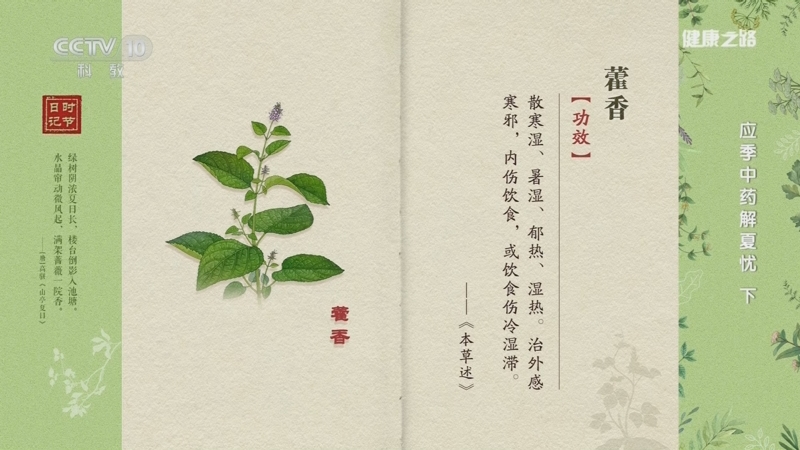 CCTV 10
科教
健康之路
时节
日记
绿树阴浓夏日长，楼台倒影入池塘。
水晶帘动微风起，满架蔷薇一院香。
——[唐]高骈《山亭夏日》
藿香
藿香
【功效】
散寒湿、暑湿、郁热、湿热。治外感
寒邪，内伤饮食，或饮食伤冷湿滞。
——《本草述》
应季中药解夏忧 下